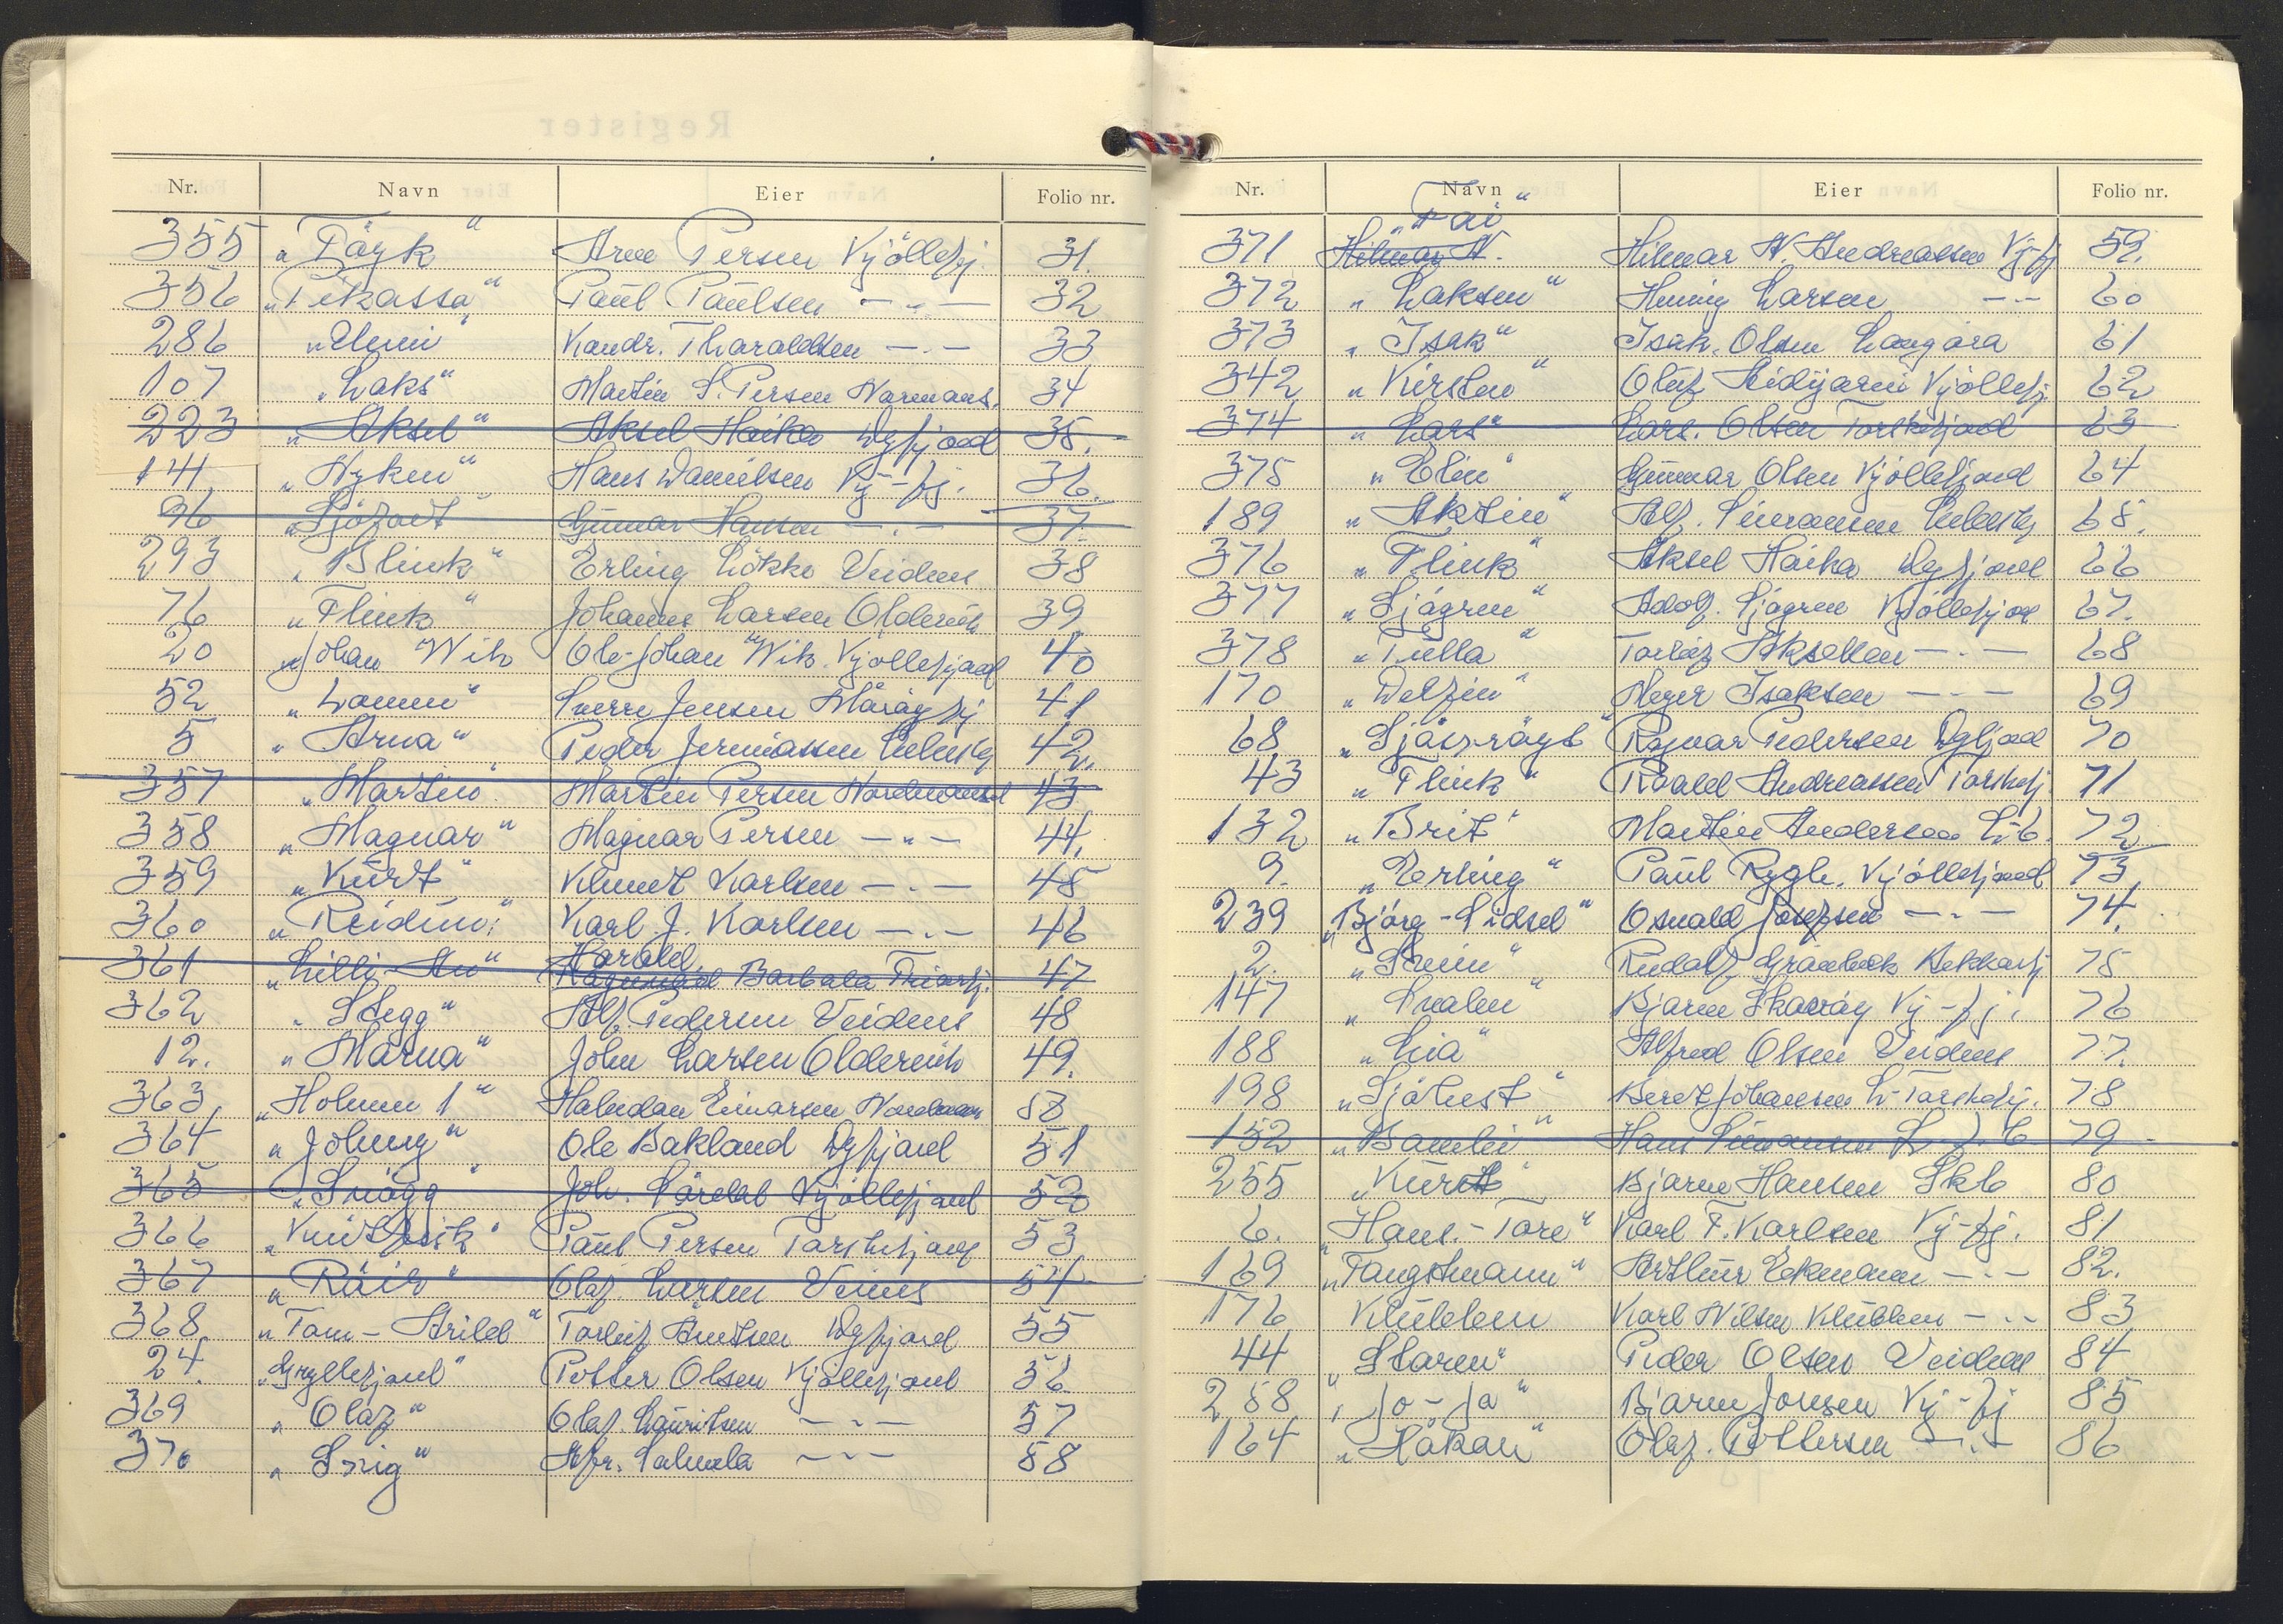 Nr. Navn Eier Folio nr.
355 "Täyk" Arne Persen Kjøllefj. 31.
356 "Pikassa" Paul Paulsen — " — 32
286 "Unni" Kondr. Tharaldsen — " — 33
107 "Laks" Martin S. Persen Normans. 34
223 "Aksel" Aksel Haika Dyfjord 35.
141 "Nyken" Hans Danielsen Kj-fj. 36.
96 Gunnar Hansen — " — 37.
293 "Blink" Erling Løkke Veidnes 38
76 "Flink" Johannes Larsen Oldervik 39
20 "Johan Wik" Ole-Johan Wik. Kjøllefjord 40
52 "Lommen" Sverre Jensen Mårøyfj 41
5 "Arna" Peder Jermiassen Lebesby 42.
357 "Martin" Martin Persen Nordmanset 43
358 "Magnar" Magnar Persen — " — 44.
359 "Kurt" Klemet Karlsen — " — 45
360 "Reidun" Karl J. Karlsen — " — 46
361 "Lilli-An" Harald Ragnvald Barbala Friarfj. 47
362 "Stegg" Alf Pedersen Veidnes 48
12. "Marna" John Larsen Oldervik 49.
363. "Holmen 1" Halvdan Einarsen 50
364 "Johnny" Ole Bakland Dyfjord 51
365 "Snøgg" Joh. Kjøllefjord 52
366 "Knut Erik" Paul Persen Torskefjord 53
367 Olaf Larsen Veines 54
368 "Tom-Arild" Torleif Amtsen Dyfjord 55
24. "Gryllefjord" Petter Olsen Kjøllefjord 56
369 "Olaf" Olaf Lauritsen — " — 57
370 "Snig" Afr. Salmela — " — 58
Nr. Navn Eier Folio nr.
"Fai"
371 Hilmar N. Hilmar N. Andreassen Kj-fj 59.
372 "Laksen" Hennig Larsen — " — 60
373 "Isak" Isak Olsen Langøra 61
342 "Kirsten" Oluf Kjøllefj. 62
374 "Lars" Lars Olsen Torskefjord 63
375 "Elin" Gunnar Olsen Kjøllefjord 64
189 "Aktiv" Alf. Simonsen Lebesby 65.
376 "Flink" Aksel Haika Dyfjord 66
377 "Sjågren" Adolf Sjågren Kjøllefjord 67.
378 "Tulla" Torleif Akselsen — " — 68
170 "Delfin" Meyer Isaksen — " — 69
68 "Sjøsprøyt" Ragnvar Pedersen Dyfjord 70
43 "Flink" Roald Andreassen Torskefj. 71
132 "Brit" Martin Andersen L-b. 72
9. "Erling" Paul Rygh. Kjøllefjord 73
239 "Bjørg-Sidsel" Osvald Josefsen — " — 74.
2. "Svein" Rudolf Grønbeck Bekkarfj 75
147 "Svalen" Bjarne Skarøy Kj-fj. 76
188 "Lia" Alfred Olsen Veidnes 77.
198 "Sjøhest" Berdt Johansen L-Torskefj. 78
152 Hans Simonsen 79
255 "Kurt" Bjarne Hansen Skb 80
6. "Hans.-Tore" Karl F. Karlsen Kj-fj. 81
169 "Fangstmann" Arthur Eekmann — " — 82.
176 Klubben Karl Nilsen Klubben — " — 83
44 "Staren" Peder Olsen Veidnes 84
258 "Jo-Ja" Bjarne Jonsen Kj-fj 85
164 "Håkan" Olaf. Pettersen — " — 86